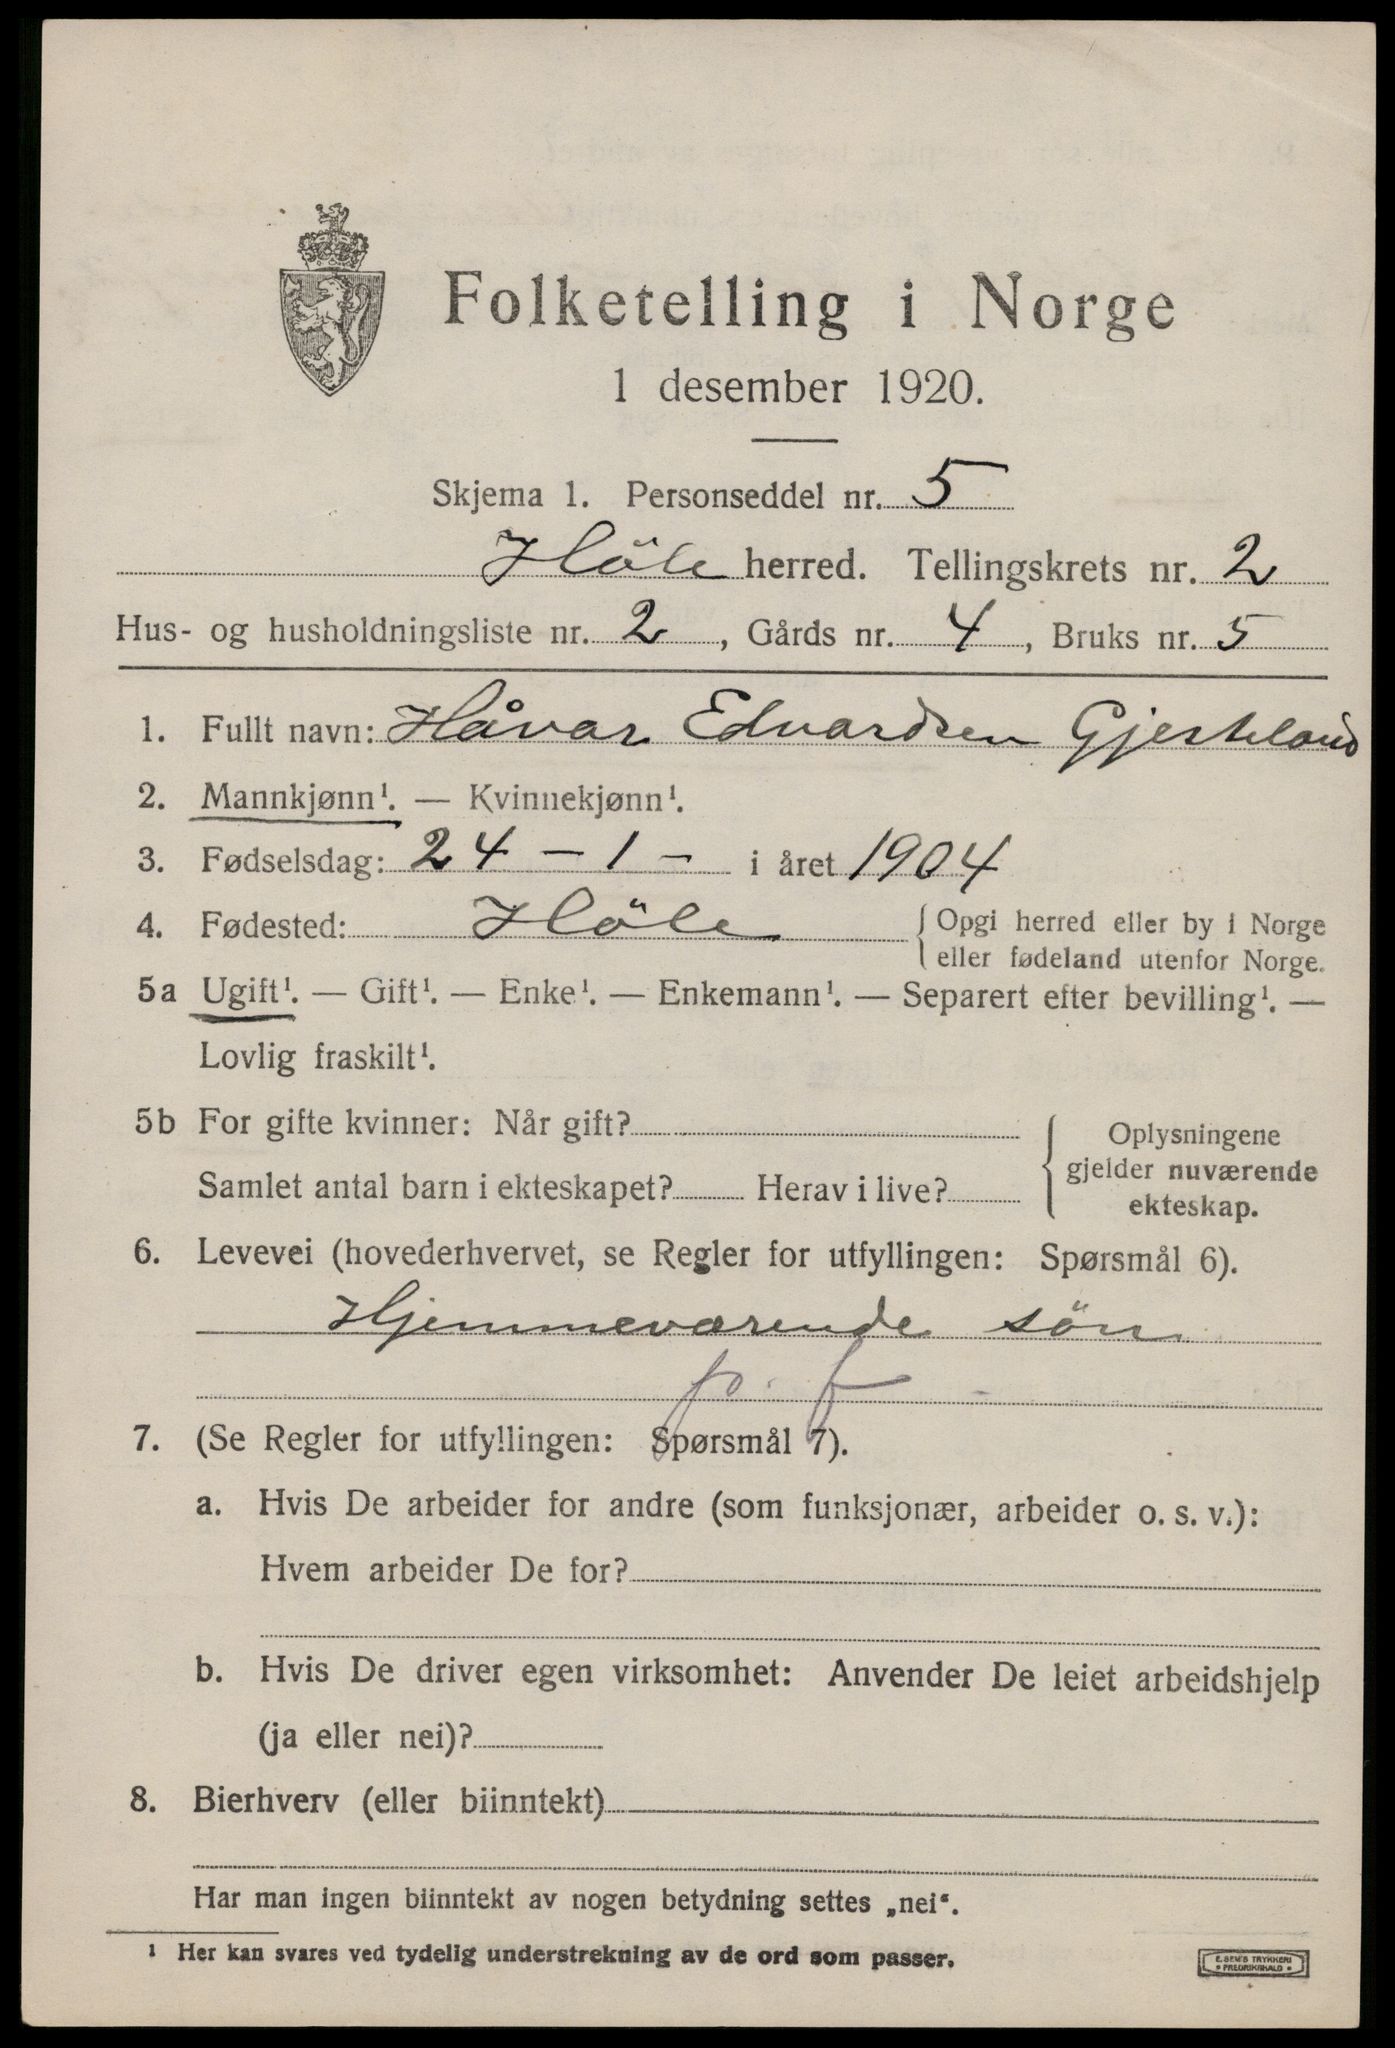 Folketelling i Norge
1 desember 1920.
Skjema 1. Personseddel nr. 5
Höle herred. Tellingskrets nr. 2
Hus- og husholdningsliste nr. 2, Gårds nr. 4, Bruks nr. 5
1. Fullt navn: Håvar Edvardsen Gjerteland
2. Mannkjønn¹. — Kvinnekjønn¹.
3. Fødselsdag: 24 - 1 - i året 1904
4. Fødested: Höle { Opgi herred eller by i Norge
eller fødeland utenfor Norge.
5a Ugift¹. — Gift¹. — Enke¹. — Enkemann¹. — Separert efter bevilling¹. —
Lovlig fraskilt¹.
5b For gifte kvinner: Når gift?
Samlet antal barn i ekteskapet? Herav i live?
{ Oplysningene
gjelder nuværende
ekteskap.
6. Levevei (hovederhvervet, se Regler for utfyllingen: Spørsmål 6).
Hjemmeværende søn
p. f
7. (Se Regler for utfyllingen: Spørsmål 7).
a. Hvis De arbeider for andre (som funksjonær, arbeider o. s. v.):
Hvem arbeider De for?
b. Hvis De driver egen virksomhet: Anvender De leiet arbeidshjelp
(ja eller nei)?
8. Bierhverv (eller biinntekt)
Har man ingen biinntekt av nogen betydning settes „nei“.
¹ Her kan svares ved tydelig understrekning av de ord som passer.
E. SEM'S TRYKKERI
• FREDRIKSHALD •